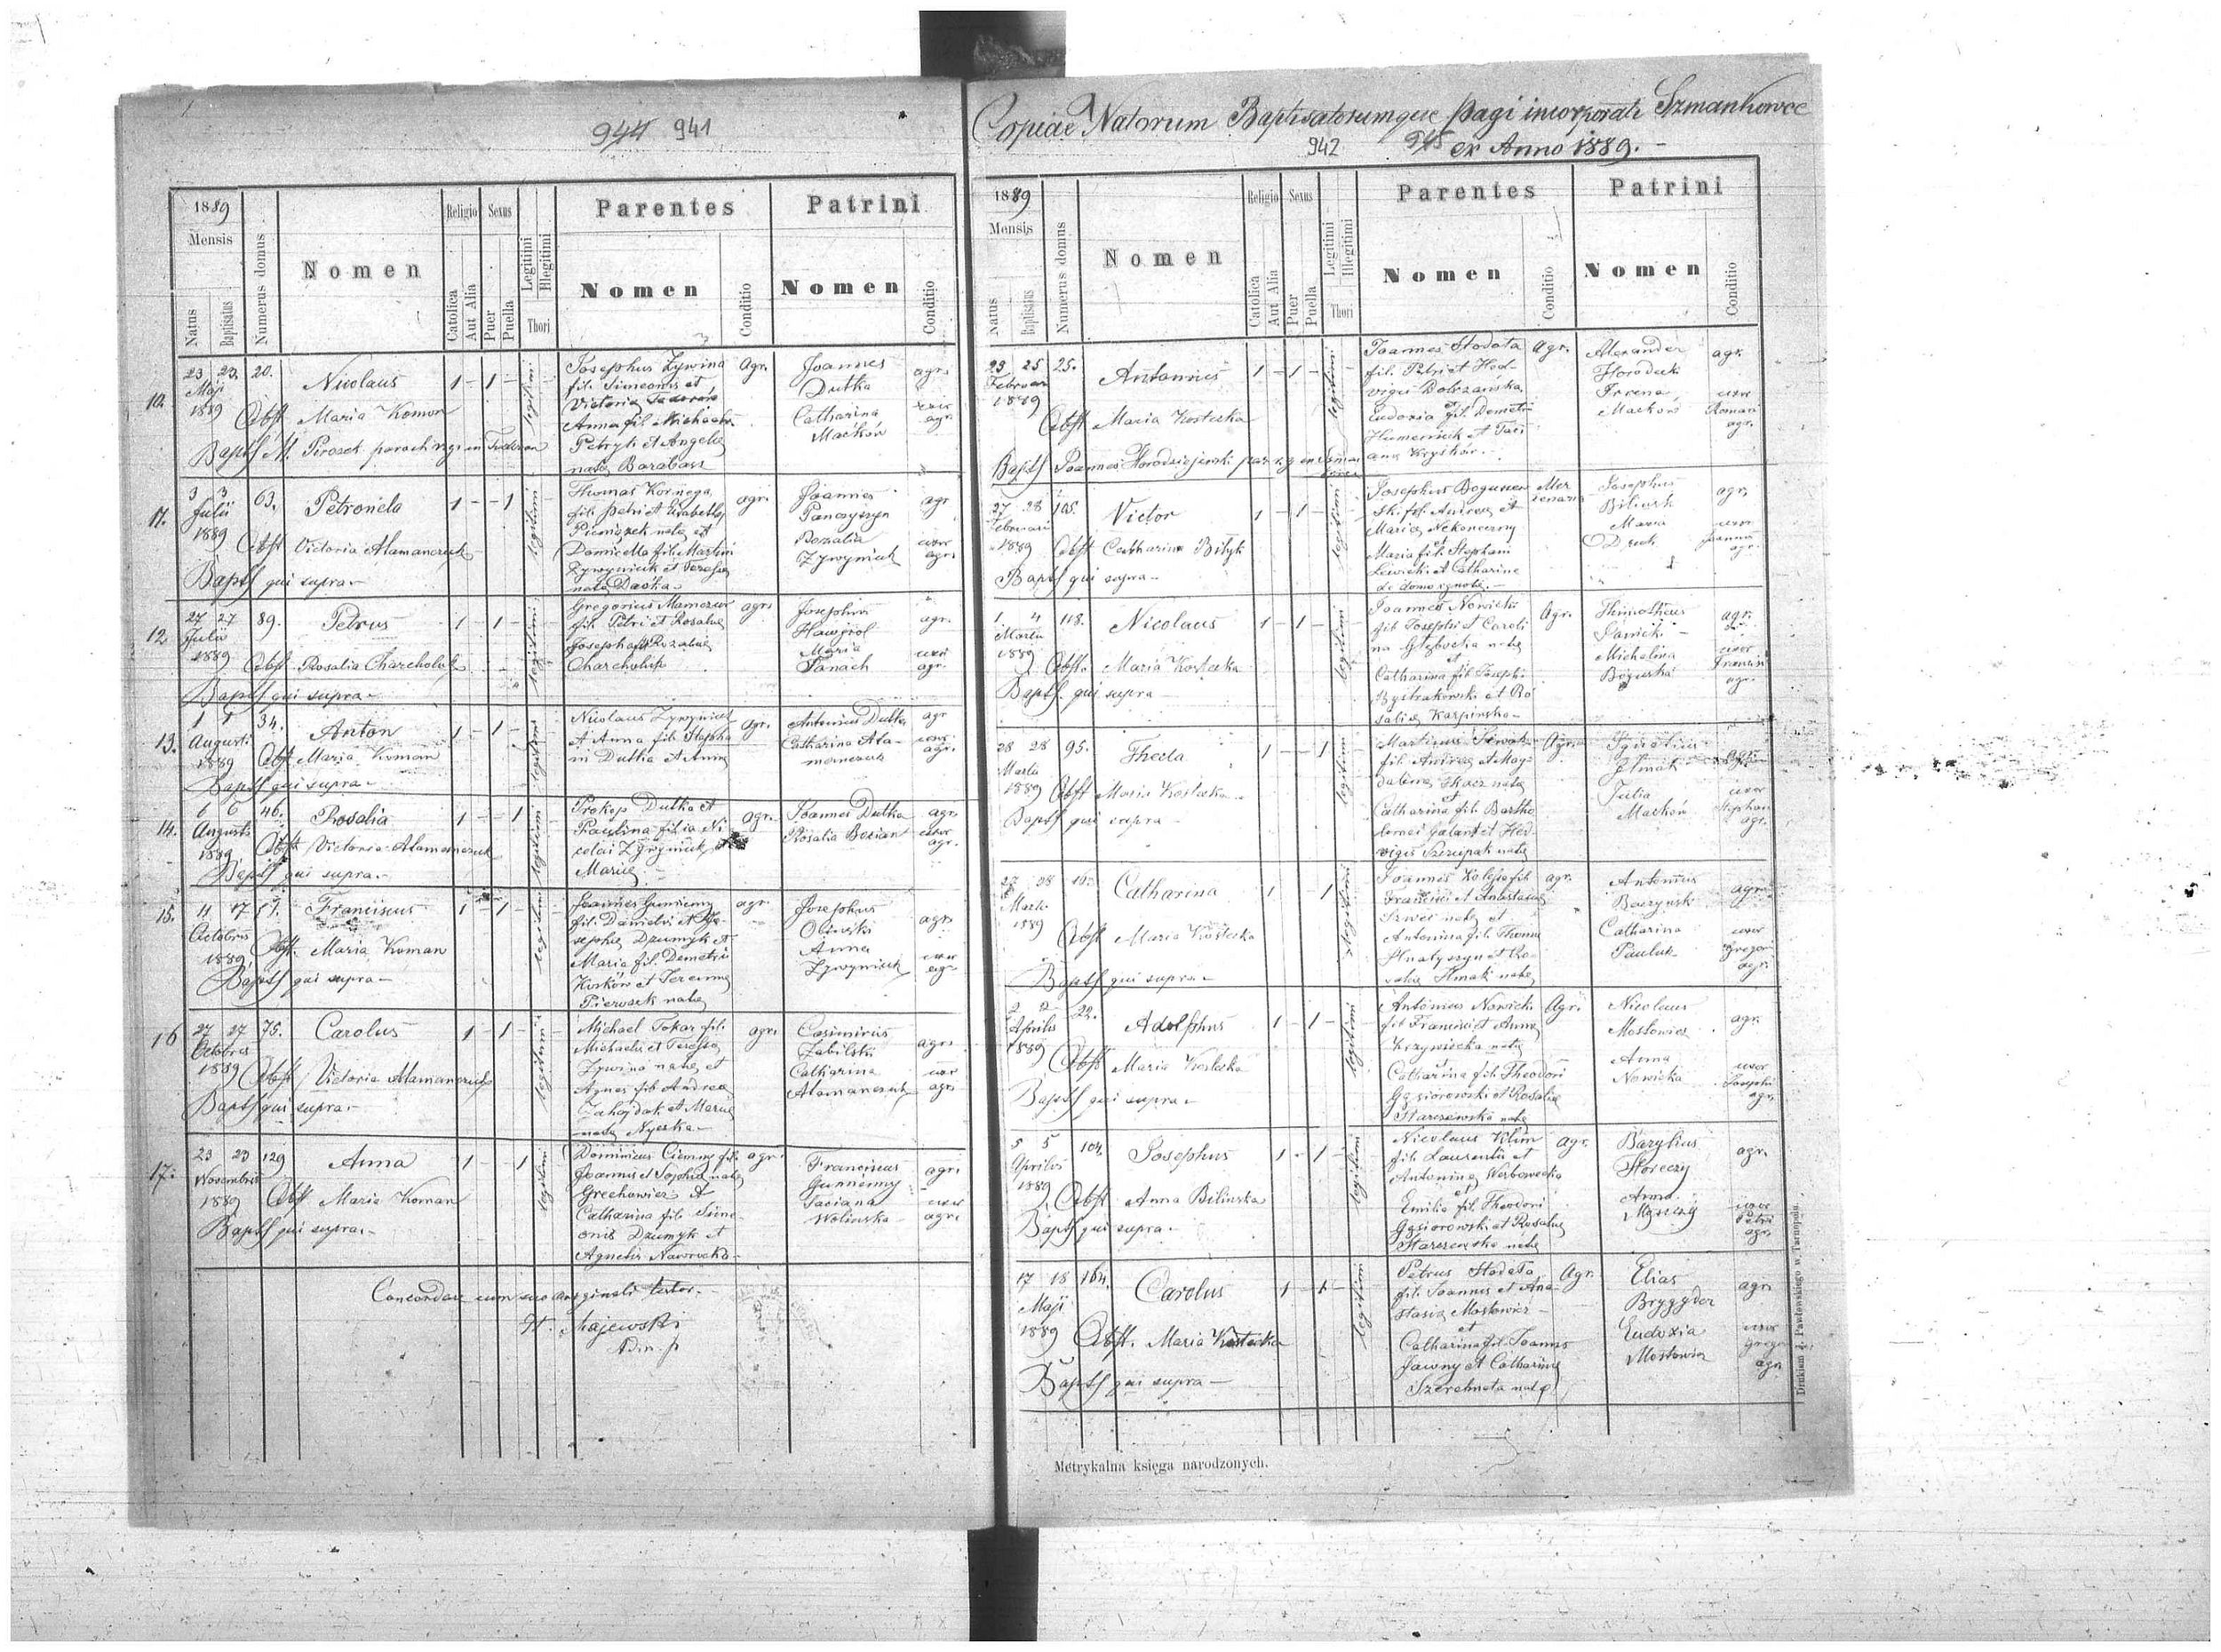 944 941
1889
Mensis
Natus
Baptisatus
Numerus domus
Nomen
Religio
Catolica
Aut Alia
Sexus
Puer
Puella
Legitimi
Illegitimi
Thori
Parentes
Nomen
Conditio
Patrini
Nomen
Conditio
10.
23 23. 20.
Maji
1889
Nicolaus
1 - 1 -
legitimi
Obst Maria Koman
Bapts M. Pirozek paroch
Josephus Zywina
fil. Simeonis et
Victoria
Anna fil. Michaelis
Petryk et Angela
nata Barabasz
Agr.
Joannes
Dutka
Catharina
Maćków
agr.
uxor
agr.
11.
3 3 63.
Julii
1889
Petronela
1 - - 1
legitimi
Obst Victoria Atamanczuk
Bapts qui supra -
Thomas
fil. Petri et Elisabetha
nata et
fil. Martini
Zywyniuk et Teresia
nata
agr.
Joannes
Rozalia
Zywyniuk
agr
uxor
agr.
12
27 27 89.
Julii
1889
Petrus
1 - 1 -
legitimi
Obst Rosalia Charcholis
Bapts qui supra -
Gregorius
fil. Petri et Rosaliae
Josepha Rozaliae
Charcholis
agr.
Josephus
Maria
Panach
agr.
uxor
agr.
13.
1 1 34.
Augusti
1889
Anton
1 - 1 -
legitimi
Obst Maria Koman
Bapts qui supra -
Nicolaus Zywyniuk
et Anna fil. Stepha
ni Dutka et Anna
agr.
Antonius Dutka
Catharina Ata-
manczuk
agr
uxor
agr.
14.
6 6 46.
Augusti
1889
Rosalia
1 - - 1
legitimi
Obst Victoria Atamanczuk
Bapts qui supra -
Prokop Dutka et
Paulina filia Ni
colai Zywyniuk et
Mariae
agr.
Joannes Dutka
Rosalia Bozian
agr.
uxor
agr.
15.
11 17 57.
Octobris
1889
Franciscus
1 - 1 -
legitimi
Obst. Maria Koman
Bapts qui supra -
Joannes Gumienny
fil. Danielis et Jo
sepha Dzumyk et
Maria fil. Demetrii
Korków et
Pierozek nata
agr.
Josephus
Anna
Zywyniuk
agr.
uxor
agr.
16
27 27 75.
Octobris
1889
Carolus
1 - 1 -
legitimi
Obst Victoria Atamanczuk
Bapts qui supra -
Michael Tokar fil.
Michaelis et Teresia
Zywina nata et
Agnes fil. Andrea
Zahajdak et Maria
nata
agr.
Casimirus
Zabilski
Catharina
Atamanczuk
agr.
uxor
agr.
17.
23 23 129
Novembris
1889
Anna
1 - 1
legitimi
Obst Maria Koman
Bapts qui supra -
Dominicus Ciemny fil.
Joannis et Sophia nata
Grechowicz et
Catharina fil. Sime-
onis Dzumyk et
Agnetis Nawrocka -
agr.
Franciscus
Gumienny
Taciana
Wolinska
agr.
uxor
agr.
Concordare cum suo originali testor. -
Majewski
Adm. p
Copiae Natorum Baptisatorumque pagi incorporati Szmankowce
942 945 ex Anno 1889. -
1889
Mensis
Natus
Baptisatus
Numerus domus
Nomen
Religio
Catolica
Aut Alia
Sexus
Puer
Puella
Legitimi
Illegitimi
Thori
Parentes
Nomen
Conditio
Patrini
Nomen
Conditio
23 25 25.
Februar
1889
Antonius
1 - 1 -
legitimi
Obst Maria Kostecka
Bapts Joannes Horodziejewski
Joannes Słodota
fil. Petri et Hed-
vigis Dobrzańska
et
Eudoxia fil. Demetri
Humeniuk et Taci
ana Kryśków. -
Agr.
Alexander
Horodecki
Irrena,
Maćków
agr.
uxor
Romani
agr.
27 28 105.
Februarii
1889
Victor
1 - 1 -
legitimi
Obst Catharina Bilyk
Bapts qui supra -
Josephus Boguszew
ski fil. Andrea et
Maria Nekoneczny
et
Maria fil. Stephani
Lewicki et Catharina
de domo ignota. -
Mer
cenarius
Josephus
Maria
agr.
uxor
Joannis
agr.
1. 4 118.
Martii
1889
Nicolaus
1 - 1 -
legitimi
Obst. Maria Kostecka
Bapts. qui supra
Joannes Nowicki
fil. Josephi et Caroli
na Głębocka nata
et
Catharina fil. Josephi
Bystrakowski et Ro
salia Karpinska -
Agr.
Thimotheus
Michelina
agr.
uxor
agr.
28 28 95.
Martii
1889
Thecla
1 - - 1
legitimi
Obst Maria Kostecka
Bapts qui supra -
Martinus
fil. Andrea et Mag-
dalena Tkacz nata
et
Catharina fil. Bartho
lomei Galant et Hed-
vigis Szczupak nata
Agr.
Ignatius
Hmak
Julia
Maćków
agr.
uxor
Stephani
agr.
27 28
Martii
1889
Catharina
1 - 1
legitimi
Obst Maria Kostecka
Bapts qui supra -
Joannes fil.
Francisci et Anastasia
Szwec nata et
Antonina fil. Thomae
et Ro-
salia Hmak nata
agr.
Antonius
Baczynski
Catharina
Pauluk
agr.
uxor
Gregor
agr.
2 2 22.
Aprilis
1889
Adolphus
1 - 1 -
legitimi
Obst Maria Kostecka
Bapts qui supra -
Antonius Nowicki
fil. Francisci et Anna
Krzywiecka nata
et
Catharina fil. Theodori
Gąsiorowski et Rosalia
Starzewska nata
Agr.
Nicolaus
Mostowicz
Anna
Nowicka
agr.
uxor
Josephi
agr.
5 5 104.
Aprilis
1889
Josephus
1 - 1 -
legitimi
Obst Anna Bilinska
Bapts qui supra -
Nicolaus Klim
fil. Laurentii et
Antonina Werbowecka
et
Emilia fil. Theodori
Gąsiorowski et Rosalia
Starzewska nata
agr.
Bazylius
Anna
agr.
uxor
Petri
agr.
17 18 164.
Maji
1889
Carolus
1 - 1 -
legitimi
Obst. Maria Kostecka
Bapts qui supra -
Petrus Słodota
fil. Joannis et Ana-
stasia Mostowicz -
et
Catharina fil. Joannis
Jawny et Catharina
Szeremeta nata
Agr.
Elias
Brygyder
Eudoxia
Mostowicz
agr.
uxor
agr.
Metrykalna księga narodzonych.
Drukiem J. Pawłowskiego w Tarnopolu.